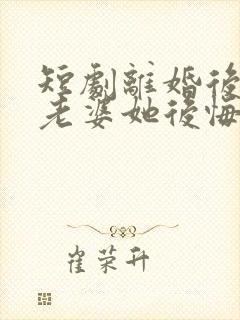 短劇離婚後
老婆她後悔
崔荣升